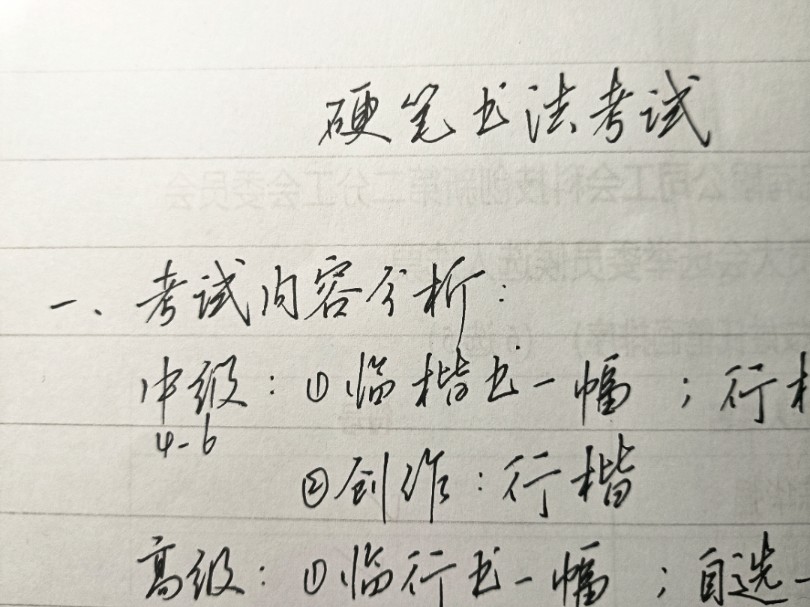 硬笔书法考试
一、考试内容分析：
中级：①临楷书一幅；行
4-6
②创作：行楷
高级：①临行书一幅；自选一